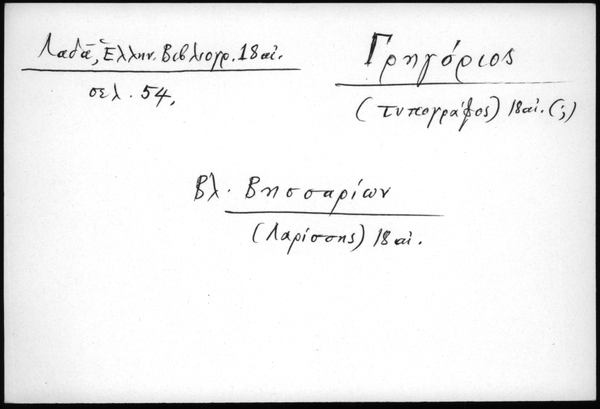 Λαδᾶ, Ἑλλην. Βιβλιογρ. 18 αἰ.
σελ. 54,
Γρηγόριος
(τυπογράφος) 18 αἰ. (;)
Βλ. Βησσαρίων
(Λαρίσσης) 18 αἰ.